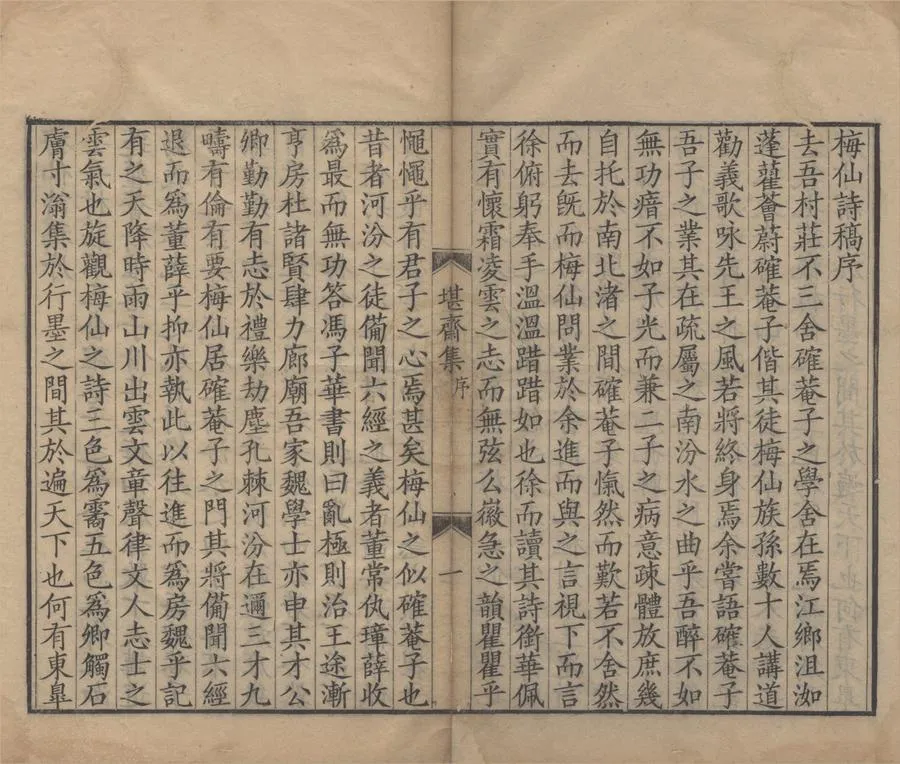 梅仙詩稿序
去吾村莊不三舍確菴子之學舍在焉江鄉沮洳
蓬藋薈蔚確菴子偕其徒梅仙族孫數十人講道
勸義歌咏先王之風若將終身焉余嘗語確菴子
吾子之業其在疏屬之南汾水之曲乎吾醉不如
無功瘖不如子光而兼二子之病意疎體放庶幾
自托於南北渚之間確菴子愾然而歎若不舍然
而去旣而梅仙問業於余進而與之言視下而言
徐俯躬奉手溫溫踖踖如也徐而讀其詩銜華佩
實有懷霜凌雲之志而無弦么徽急之韻瞿瞿乎
堪齋集 序 一
㦣㦣乎有君子之心焉甚矣梅仙之似確菴子也
昔者河汾之徒備聞六經之義者董常仇璋薛收
爲最而無功答馮子華書則曰亂極則治王途漸
亨房杜諸賢肆力廊廟吾家魏學士亦申其才公
卿勤勤有志於禮樂劫塵孔棘河汾在邇三才九
疇有倫有要梅仙居確菴子之門其將備聞六經
退而爲董薛乎抑亦執此以往進而爲房魏乎記
有之天降時雨山川出雲文章聲律文人志士之
雲氣也旋觀梅仙之詩三色爲矞五色爲卿觸石
膚寸滃集於行墨之間其於遍天下也何有東臯